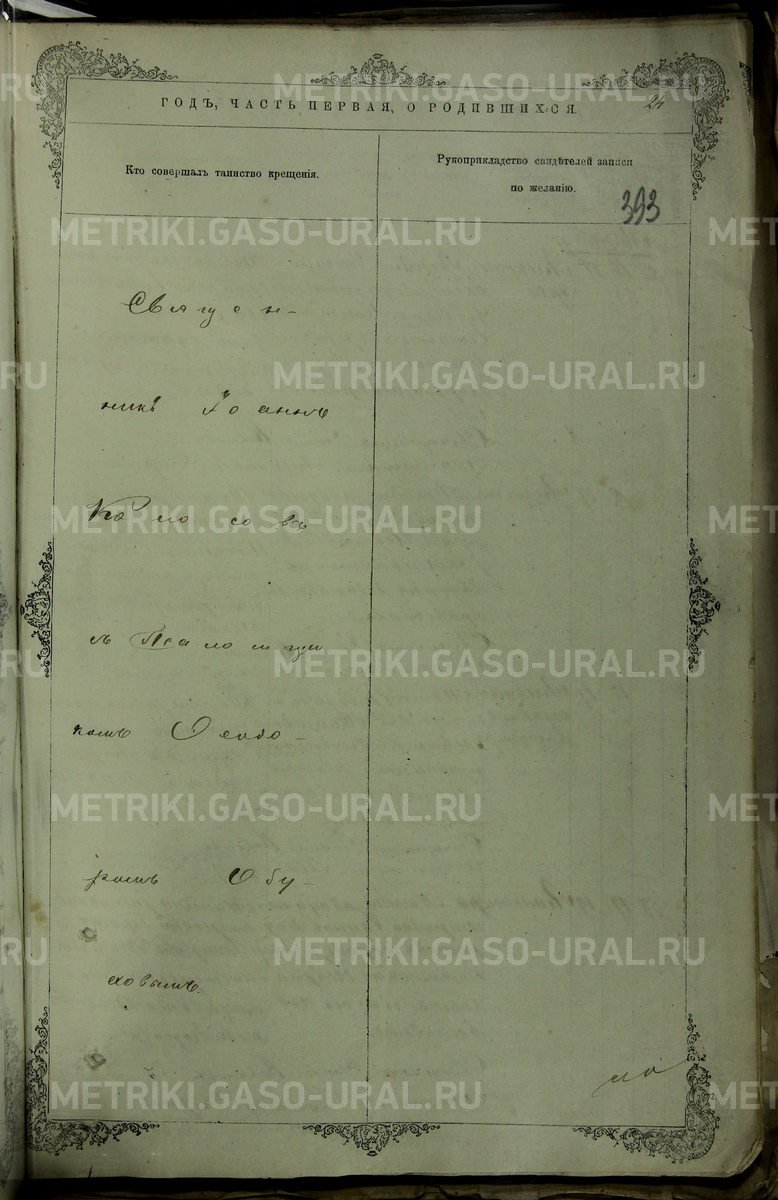 ГОДЪ, ЧАСТЬ ПЕРВАЯ, О РОДИВШИХСЯ.
24
Кто совершалъ таинство крещенія.
Рукоприкладство свидѣтелей записи
по желанію.
393
Священ-
никъ Іоаннъ
Колосовъ
съ Псаломщи
комъ Ѳеодо-
ромъ Обу-
ховымъ.
METRIKI.GASO-URAL.RU